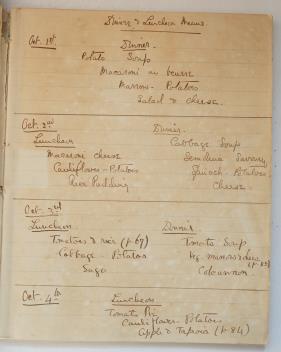 Dinner & Luncheon Menus
Oct. 1st
Dinner.
Potato Soup
Macaroni au beurre
Marrow - Potatoes
Salad & cheese.
Oct. 2nd
Luncheon
Macaroni cheese
Cauliflower - Potatoes
Rice Pudding
Dinner.
Cabbage Soup
Semolina Savoury
Spinach - Potatoes
Cheese.
Oct. 3rd
Luncheon
Tomatoes & rice (p. 67)
Cabbage - Potatoes
Sago
Dinner
Tomato Soup
Veg.
Oct. 4th
Luncheon
Tomato Pie
Cauliflower - Potatoes
Apple & Tapioca (p. 84)